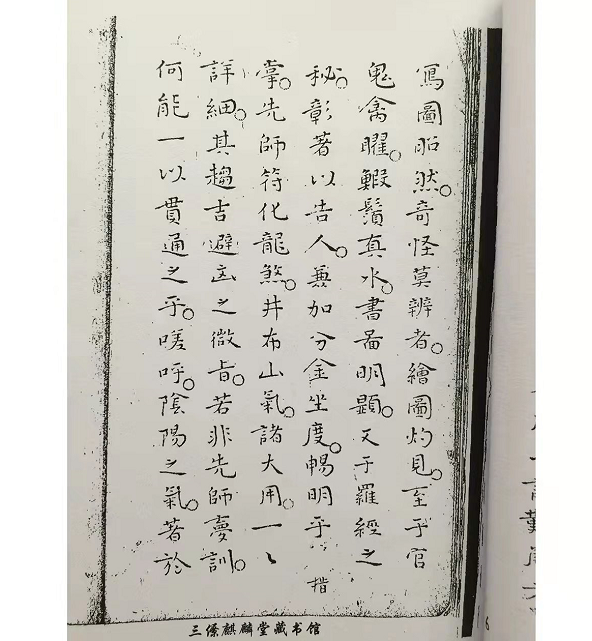 寫圖昭然。奇怪莫辨者。繪圖灼見。至于官
鬼禽曜。鰕鬚真水。書啚明顯。又于羅經之
秘。彰著以告人。兼加分金坐度。暢明乎指
掌。先師符化龍煞。井布山氣。諸大用。一々
詳細。其趨吉避凶之微旨。若非先師夢訓。
何能一以貫通之乎。嗟呼。陰陽之氣。著於
三僚麒麟堂藏书馆
6